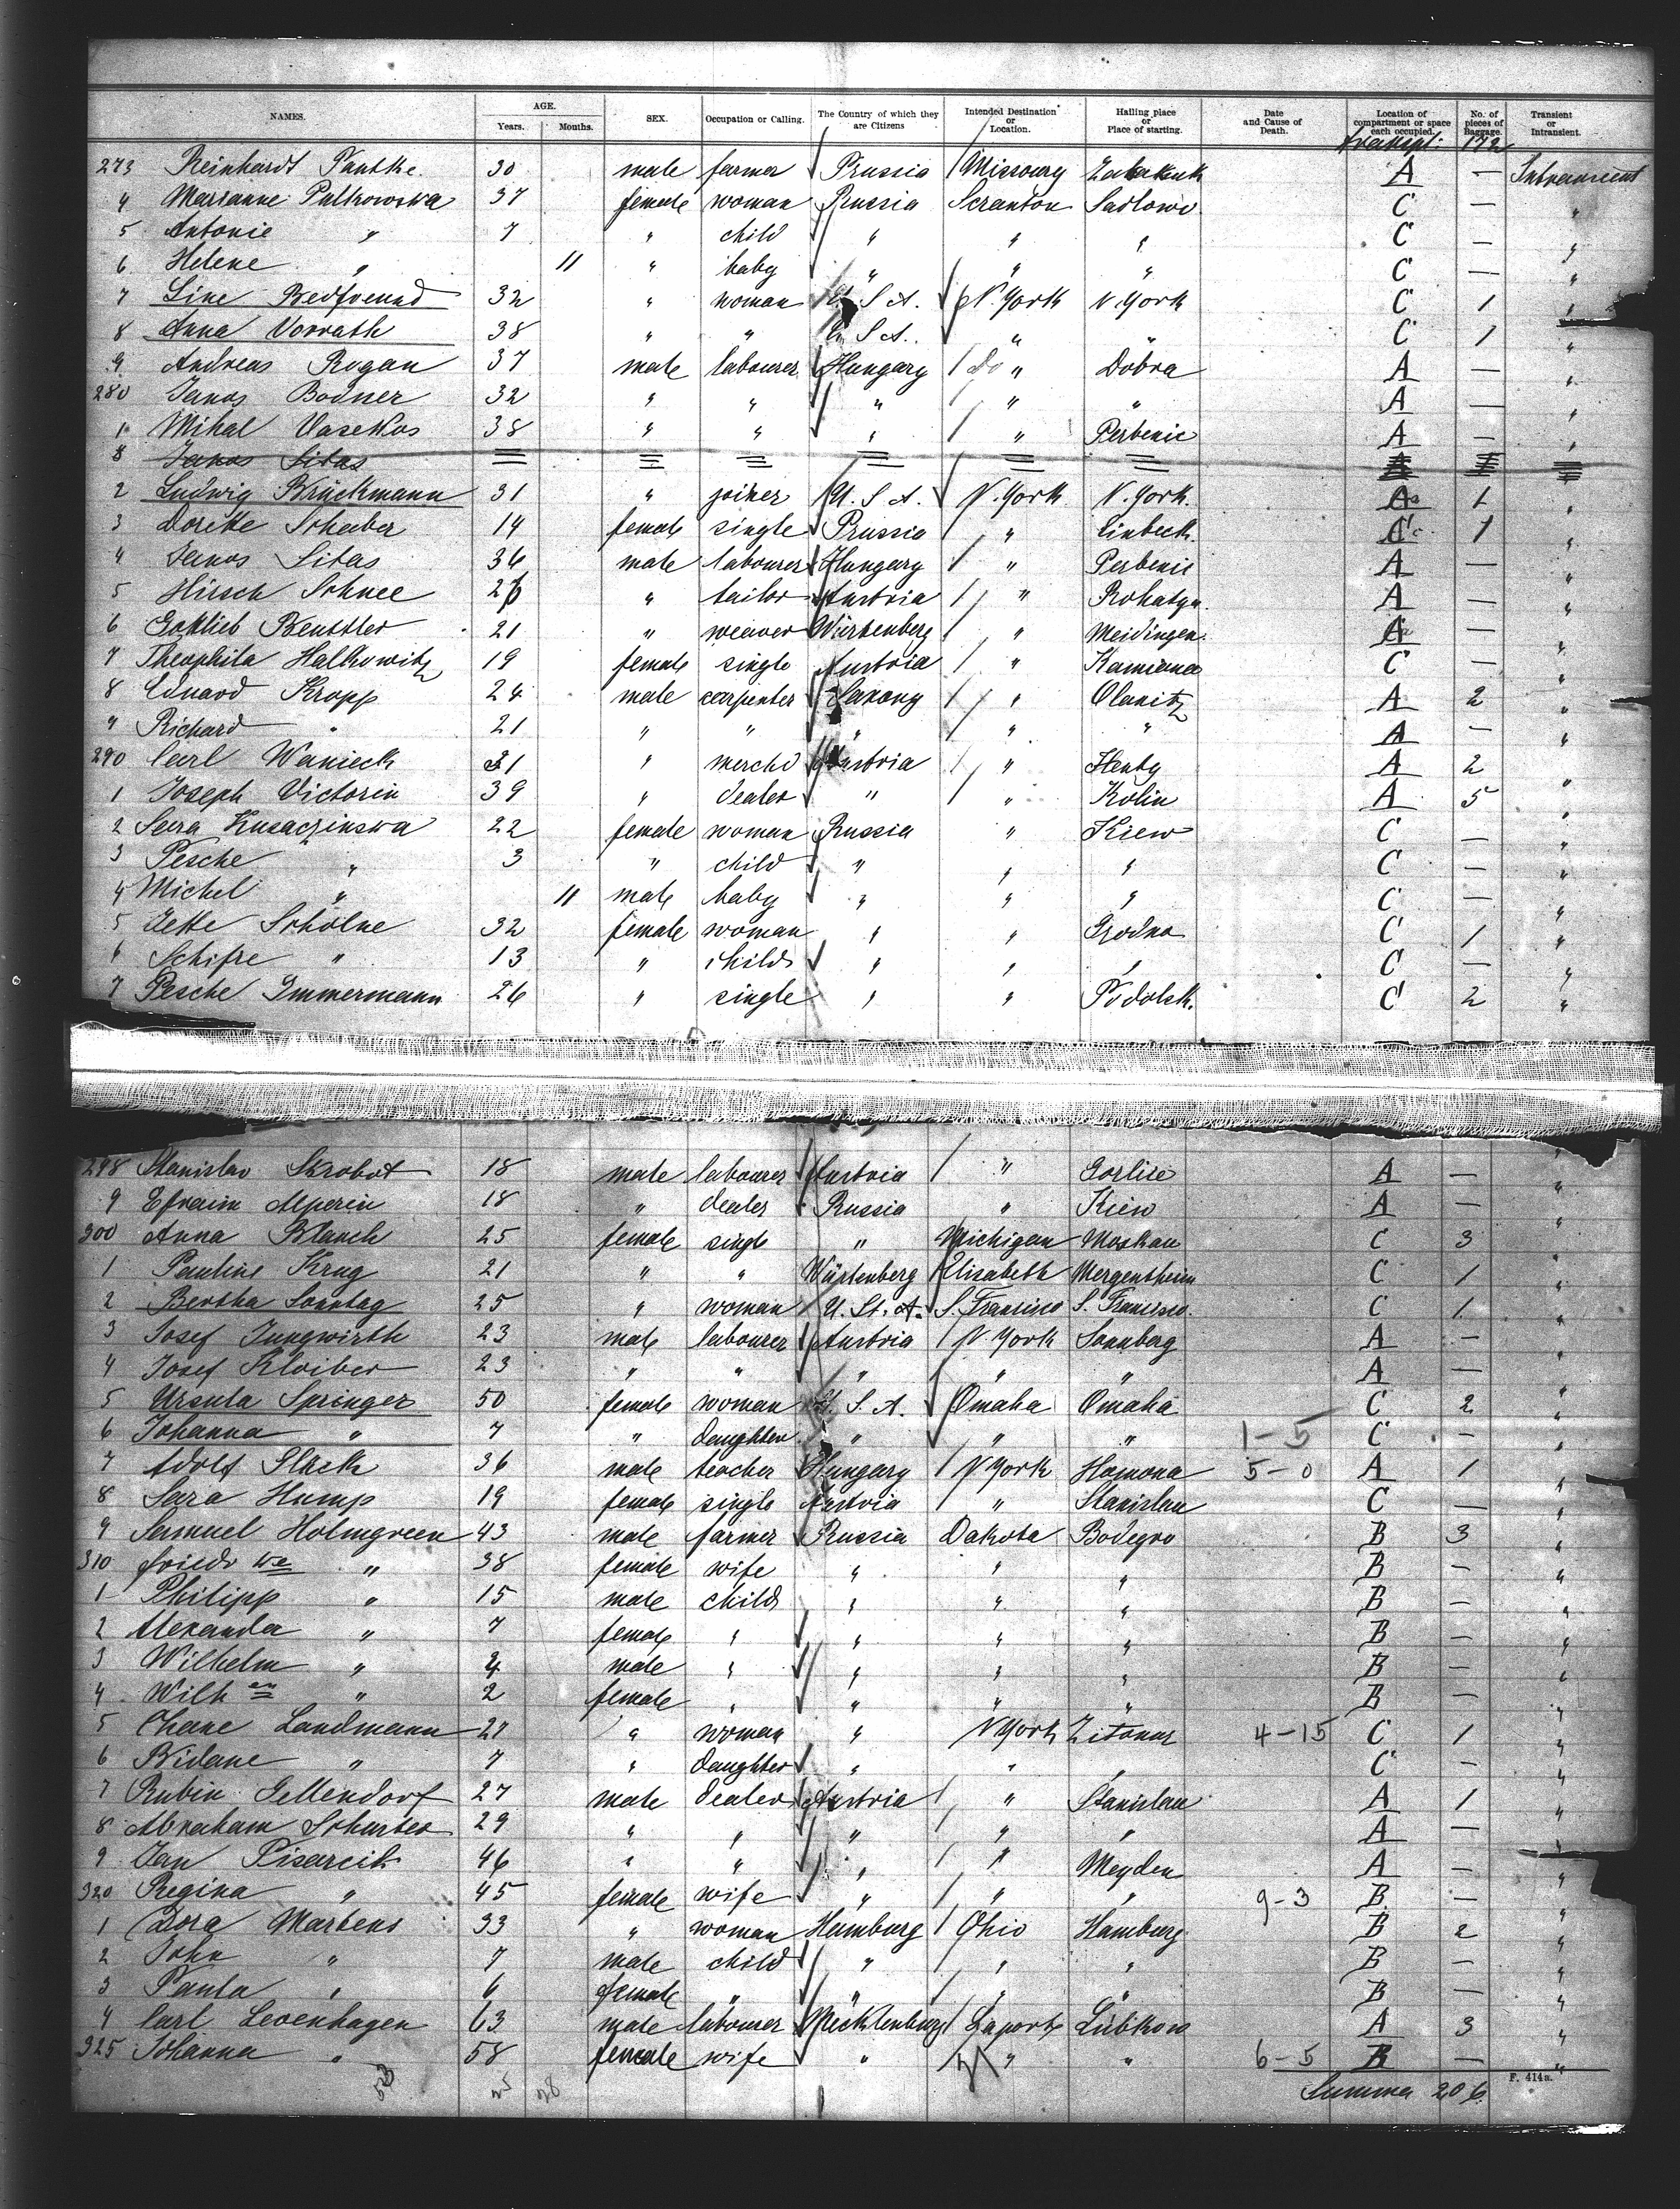 NAMES. AGE. Years. Months. SEX. Occupation or Calling. The Country of which they are Citizens Intended Destination or Location. Hailing place or Place of starting. Date and Cause of Death. Location of compartment or space each occupied. No. of pieces of Baggage. Transient or Intransient.
172
273 Reinhardt Pantke 30 male farmer Prussia Missoury A — Intransient
4 Marianne Palkowska 37 female woman Russia Scranton Sadlowo C — "
5 Antonie " 7 " child " " " C — "
6 Helene " 11 " baby " " " C — "
7 Line Bedfreund 32 " woman U. S A. N. York N. York C 1 "
8 Anna Vorrath 38 " " U. S A. " " C 1 "
9 Andreas Rogan 37 male labourer Hungary Do " Dobra A — "
280 Janos Bodner 32 " " " " " A — "
1 Mihal Vasekos 38 " " " " Perbenic A — "
8 Janos Sitas
2 Ludwig Brückmann 31 " joiner U. S. A. N. York N. York. 1 "
3 Dorette Schaber 14 female single Prussia " Einbeck. 1 "
4 Janos Sitas 36 male labourer Hungary " Perbenic A — "
5 Hirsch Schnee 26 " tailor Austria " Rohatyn. A — "
6 Gottlieb Beuttler 21 " weaver Würtenberg " Meidingen. — "
7 Theophila Halkowitz 19 female single Austria " Kamiana C — "
8 Eduard Kropp 24 male carpenter Saxony " Olanitz A 2 "
9 Richard " 21 " " " " " A — "
290 Carl Wanieck 31 " merchd Austria " Henty A 2 "
1 Joseph Victorin 39 " dealer " " Kolin A 5 "
2 Sara Kusaczinswa 22 female woman Russia " Kiew C — "
3 Pesche " 3 " child " " " C — "
4 Michel " 11 male baby " " " C — "
5 Jette Scholne 32 female woman " " Grodno C 1 "
6 Schifre " 13 " child " " " C — "
7 Pesche Immermann 26 " single " " Podolsk. C 2 "
298 Stanislav Skrobot 18 male labourer Austria " Gorlice A — "
9 Efraim Alperin 18 " dealer Russia " Kiew A — "
300 Anna Blauch 25 female single " Michigan Moskau C 3 "
1 Pauline Krug 21 " " Würtenberg Elisabeth Mergentheim C 1 "
2 Bertha Sonntag 25 " woman U. St. A. S. Francisco S. Francisco. C 1. "
3 Josef Jungwirth 23 male labourer Austria N. York Sonnberg A — "
4 Josef Kloiber 23 " " " " " A — "
5 Ursula Springer 50 female woman U. S. A. Omaha Omaha C 2 "
6 Johanna " 7 " daughter " " " 1-5 C — "
7 Adolf Slack 36 male teacher Hungary N York Homona 5-0 A 1 "
8 Sara Hump 19 female single Austria " Stanislau C — "
9 Samuel Holmgreen 43 male farmer Russia Dakota Bodegro B 3 "
310 Friedr we " 38 female wife " " " B — "
1 Philipp " 15 male child " " " B — "
2 Alexander " 7 female " " " " B — "
3 Wilhelm " 4 male " " " " B — "
4 Wilh en " 2 female " " " " B — "
5 Chane Landmann 27 " woman " N York Zitomir 4-15 C 1 "
6 Bidane " 7 " daughter " " " C — "
7 Rubin Gellendorf 27 male dealer Austria " Stanislau A 1 "
8 Abraham Schurter 29 " " " " " A — "
9 Jan Pisarcik 46 " " " " Meyden A — "
320 Regina " 45 female wife " " " 9-3 B — "
1 Dora Martens 33 " woman Hamburg Ohio Hamburg B 2 "
2 John " 7 male child " " " B — "
3 Paula " 6 female " " " " B — "
4 Carl Levenhagen 63 male labourer Mecklenburg Laporte Lübkow A 3 "
325 Johanna " 58 female wife " " " 6-5 B — "
Summa 206
F. 414a.